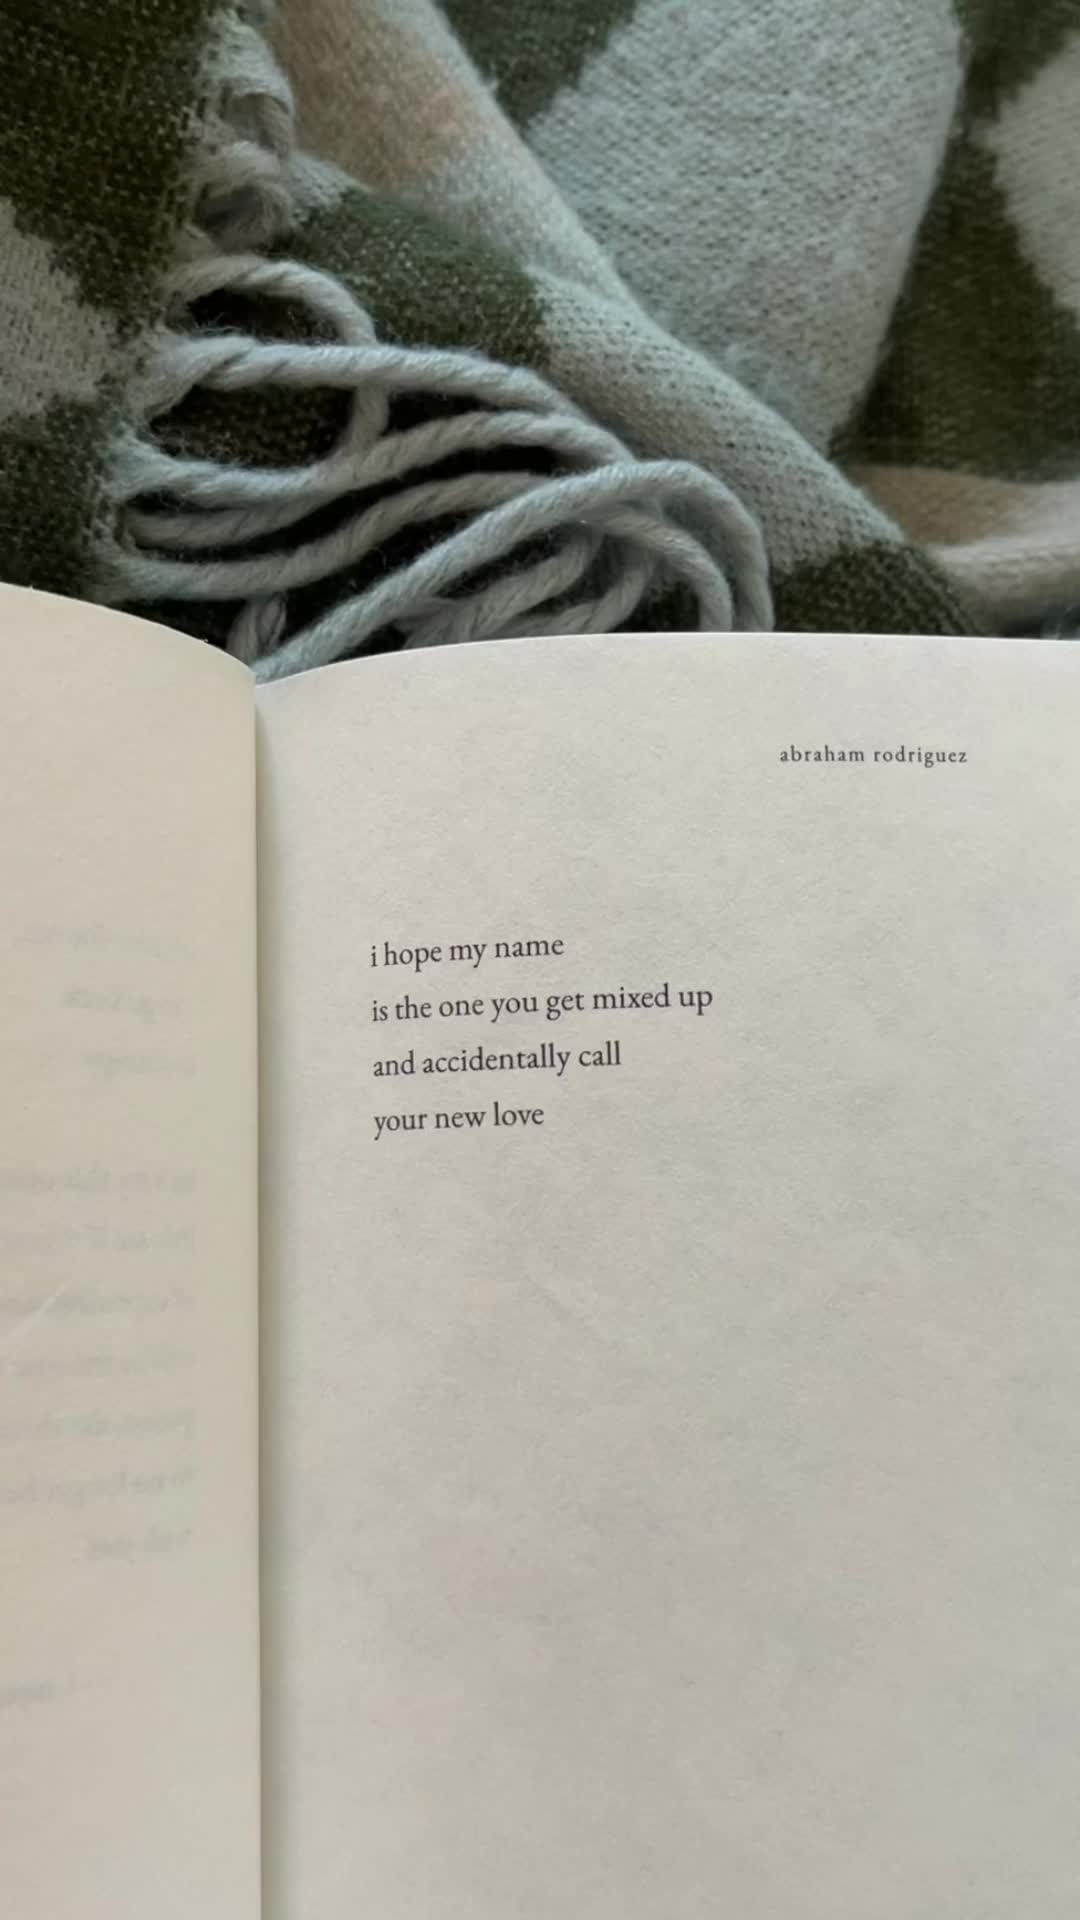 abraham rodriguez
i hope my name
is the one you get mixed up
and accidentally call
your new love